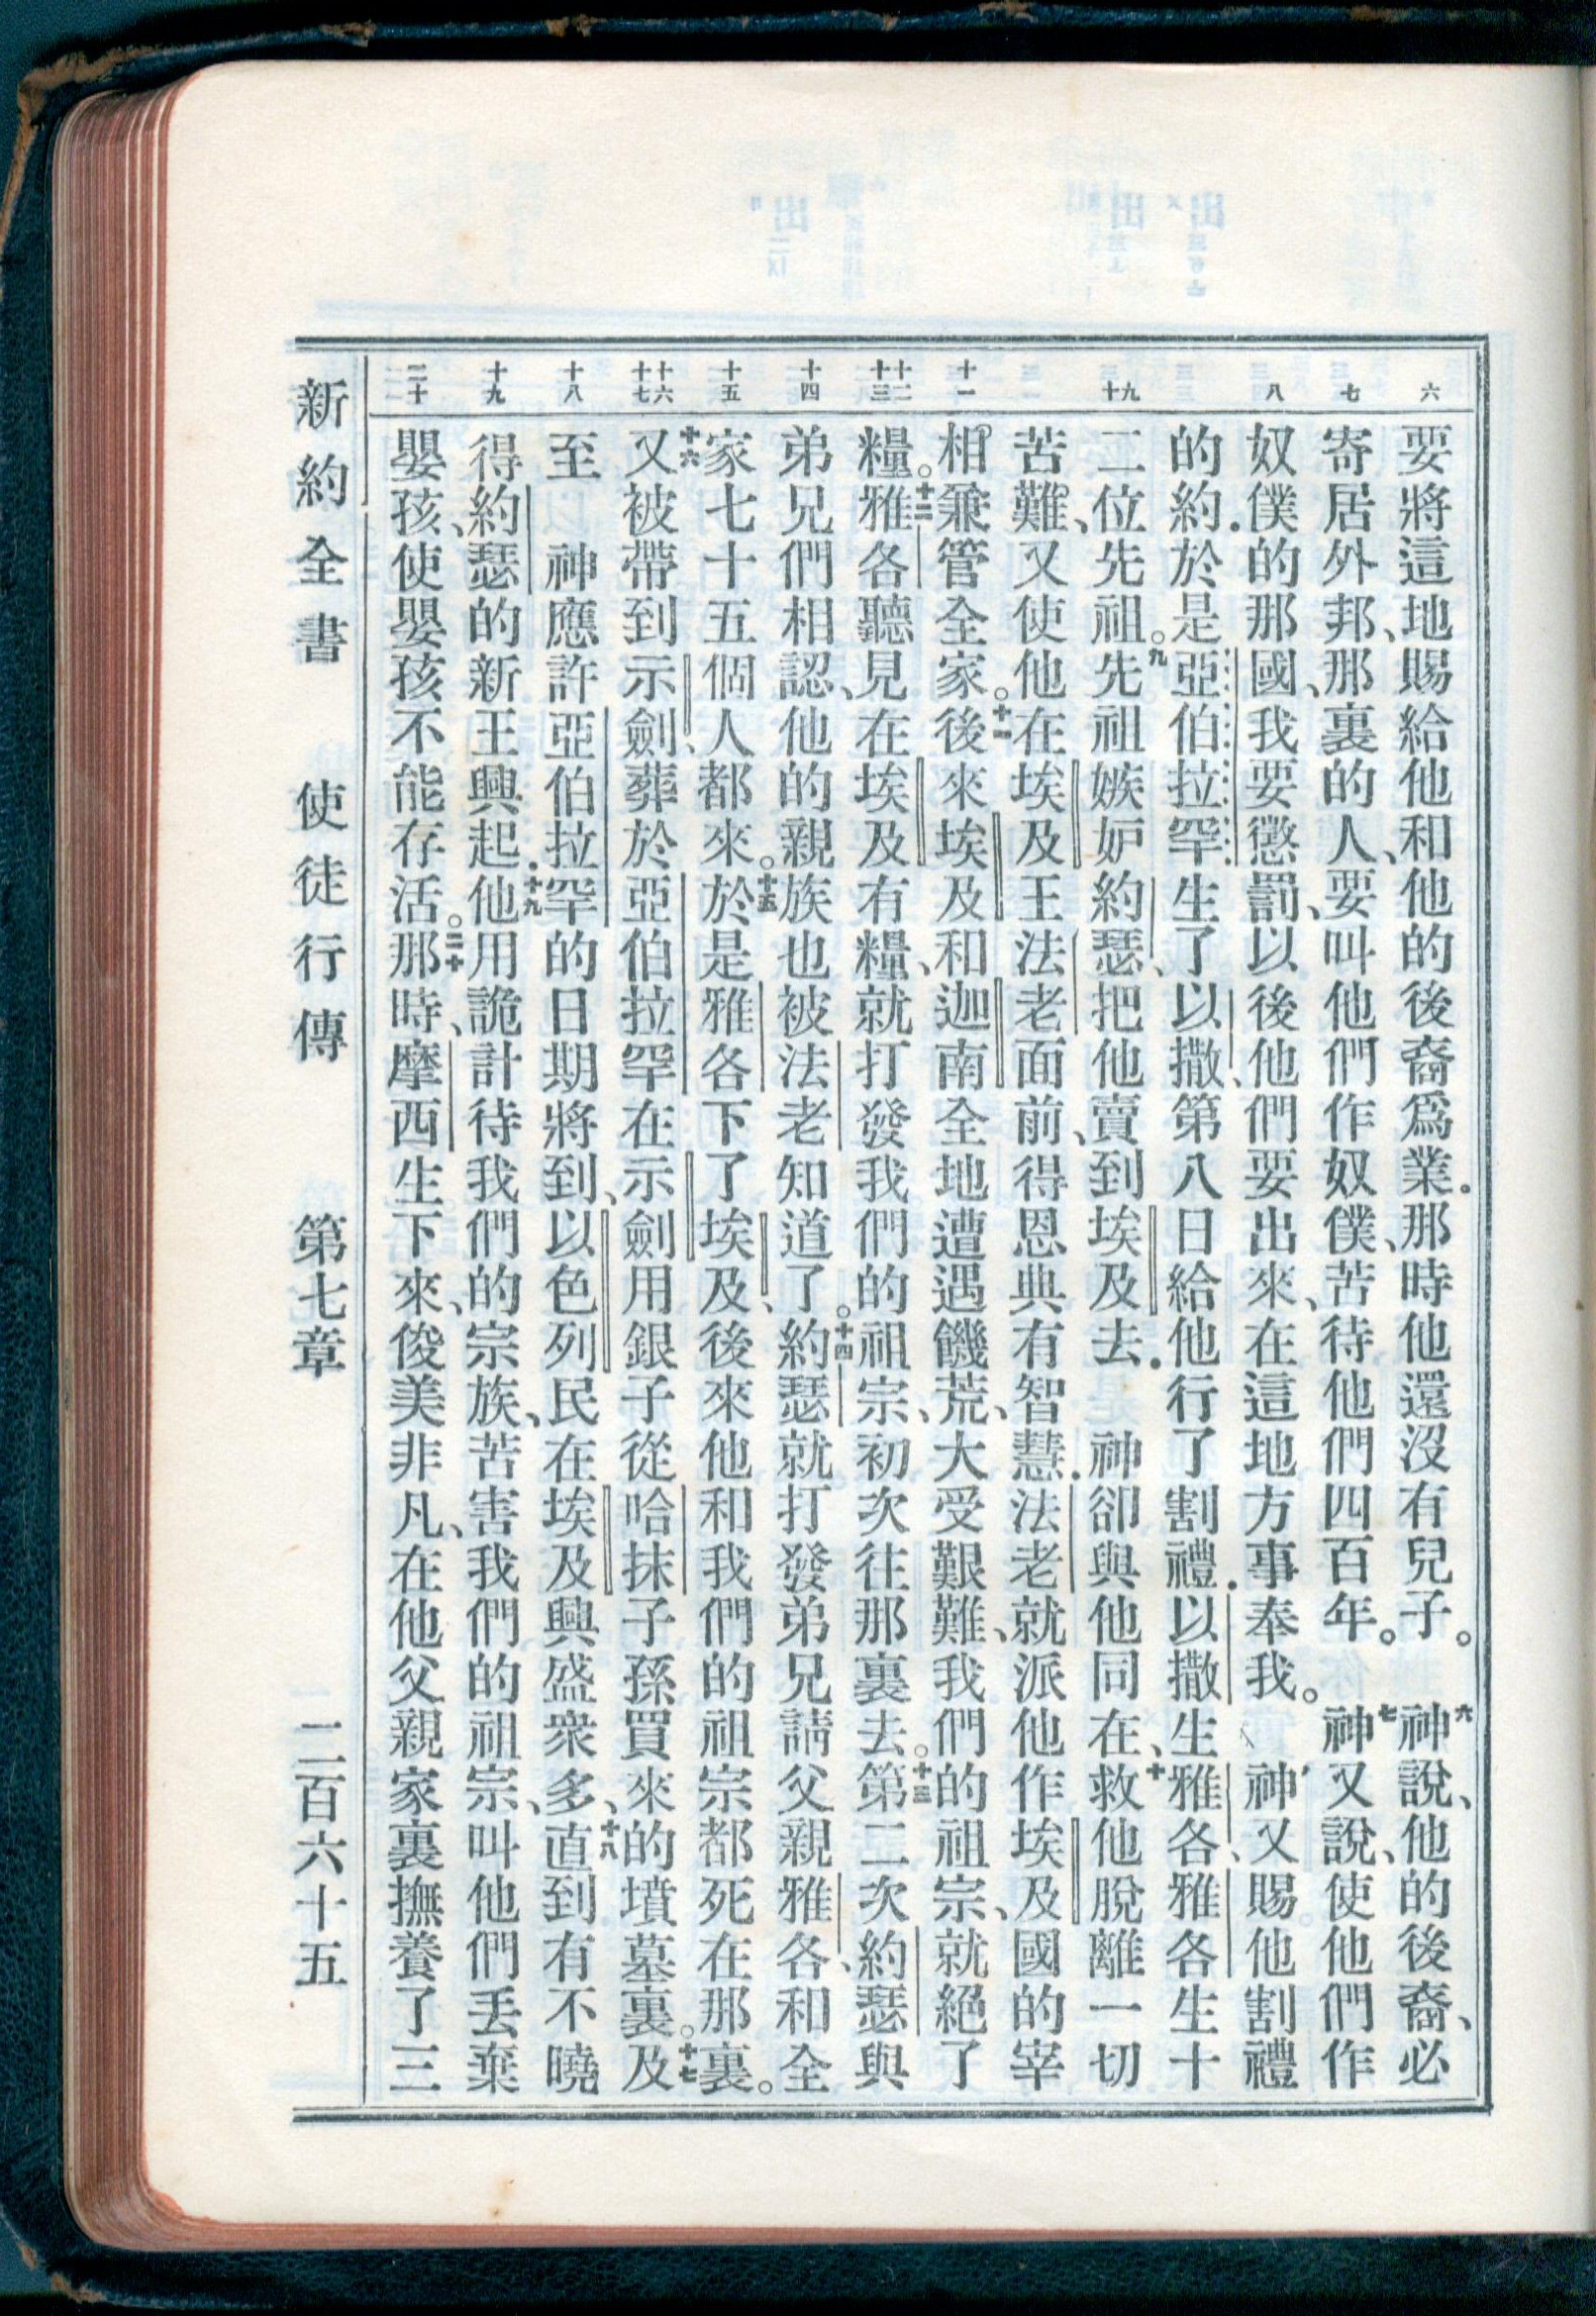 六 七 八 九 十 十一 十二 十三 十四 十五 十六 十七 十八 十九 二十
要將這地賜給他和他的後裔爲業．那時他還沒有兒子。六神說、他的後裔、必
寄居外邦、那裏的人、要叫他們作奴僕、苦待他們四百年。七神又說、使他們作
奴僕的那國、我要懲罰、以後他們要出來、在這地方事奉我。神又賜他割禮
的約．於是亞伯拉罕生了以撒、第八日給他行了割禮．以撒生雅各、雅各生十
二位先祖。九先祖嫉妒約瑟、把他賣到埃及去．神卻與他同在、十救他脫離一切
苦難、又使他在埃及王法老面前、得恩典有智慧．法老就派他作埃及國的宰
相兼管全家。十一後來埃及和迦南全地遭遇饑荒、大受艱難、我們的祖宗、就絕了
糧。十二雅各聽見在埃及有糧、就打發我們的祖宗、初次往那裏去。十三第二次約瑟與
弟兄們相認、他的親族也被法老知道了。十四約瑟就打發弟兄請父親雅各、和全
家七十五個人都來。十五於是雅各下了埃及、後來他和我們的祖宗都死在那裏。
十六又被帶到示劍、葬於亞伯拉罕在示劍用銀子從哈抹子孫買來的墳墓裏。十七及
至 神應許亞伯拉罕的日期將到、以色列民在埃及興盛衆多、十八直到有不曉
得約瑟的新王興起．十九他用詭計待我們的宗族、苦害我們的祖宗、叫他們丟棄
嬰孩、使嬰孩不能存活。二十那時、摩西生下來、俊美非凡、在他父親家裏撫養了三
新約全書 使徒行傳 第七章 二百六十五